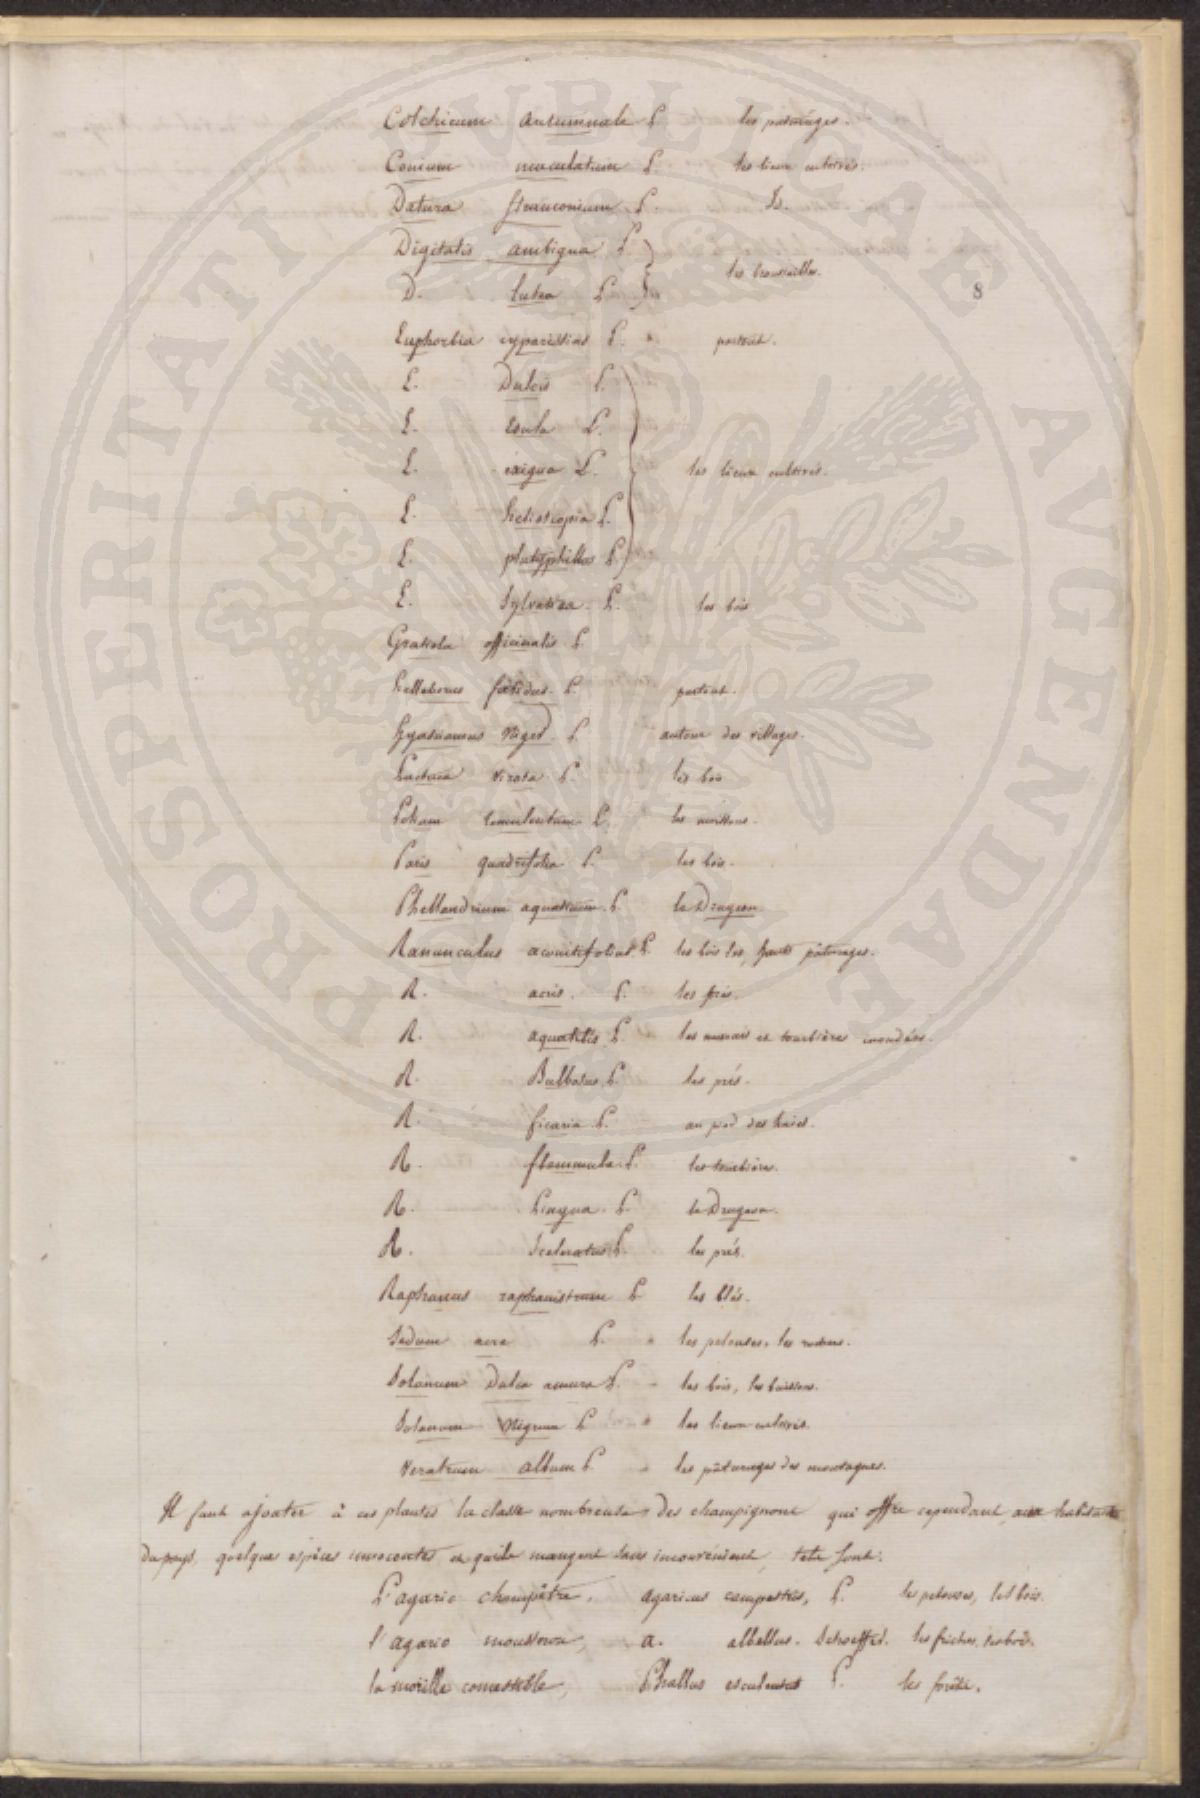 Colchicum autumnale L. les pâturages.
Conium maculatum L. les lieux cultivés.
Datura stramonium L. Id.
Digitalis ambigua L.
D. lutea L. les broussailles.
8
Euphorbia cyparissias L. partout.
E. Dulcis L.
E. Esula L.
E. exigua L. les lieux cultivés.
E. helioscopia L.
E. platyphillos L.
E. Sylvatica L. les bois
Gratiola officinalis L.
helleborus foetidus L. partout.
hyosciamus Niger L. autour des villages.
Lactuca virosa L. les bois
Lolium temulentum L. les moissons.
Paris quadrifolia L. les bois.
Phellandrium aquaticum L. le Drugeon
Ranunculus aconitifolius L. les bois les hauts pâturages.
R. acris. L. les prés.
R. aquatilis L. les marais et tourbières inondées.
R. Bulbosus L. les prés.
R. ficaria L. au pied des haies.
R. flammula L. les tourbières.
R. Lingua L. le Drugeon.
R. Sceleratus L. les prés.
Raphanus raphanistrum L. les blés.
Sedum acre L. les pelouses, les
Solanum Dulca amara L. les bois, les buissons.
Solanum Nigrum L. les lieux cultivés.
Veratrum album L. les pâturages des montagnes.
Il faut ajouter à ces plantes la classe nombreuse des champignons qui offre cependant aux habitants
Du pays, quelques espèces innocentes et qu'ils mangent sans inconvénient, tels sont:
L'agaric champêtre, agaricus campestris, L. les pelouses, les bois.
l'agaric mousseron, a. albellus. Schoeffer. les friches, les bois.
la morille comestible, Phallus esculentus L. les forêts.
PROSPERITATI PUBLICAE AVGENDAE